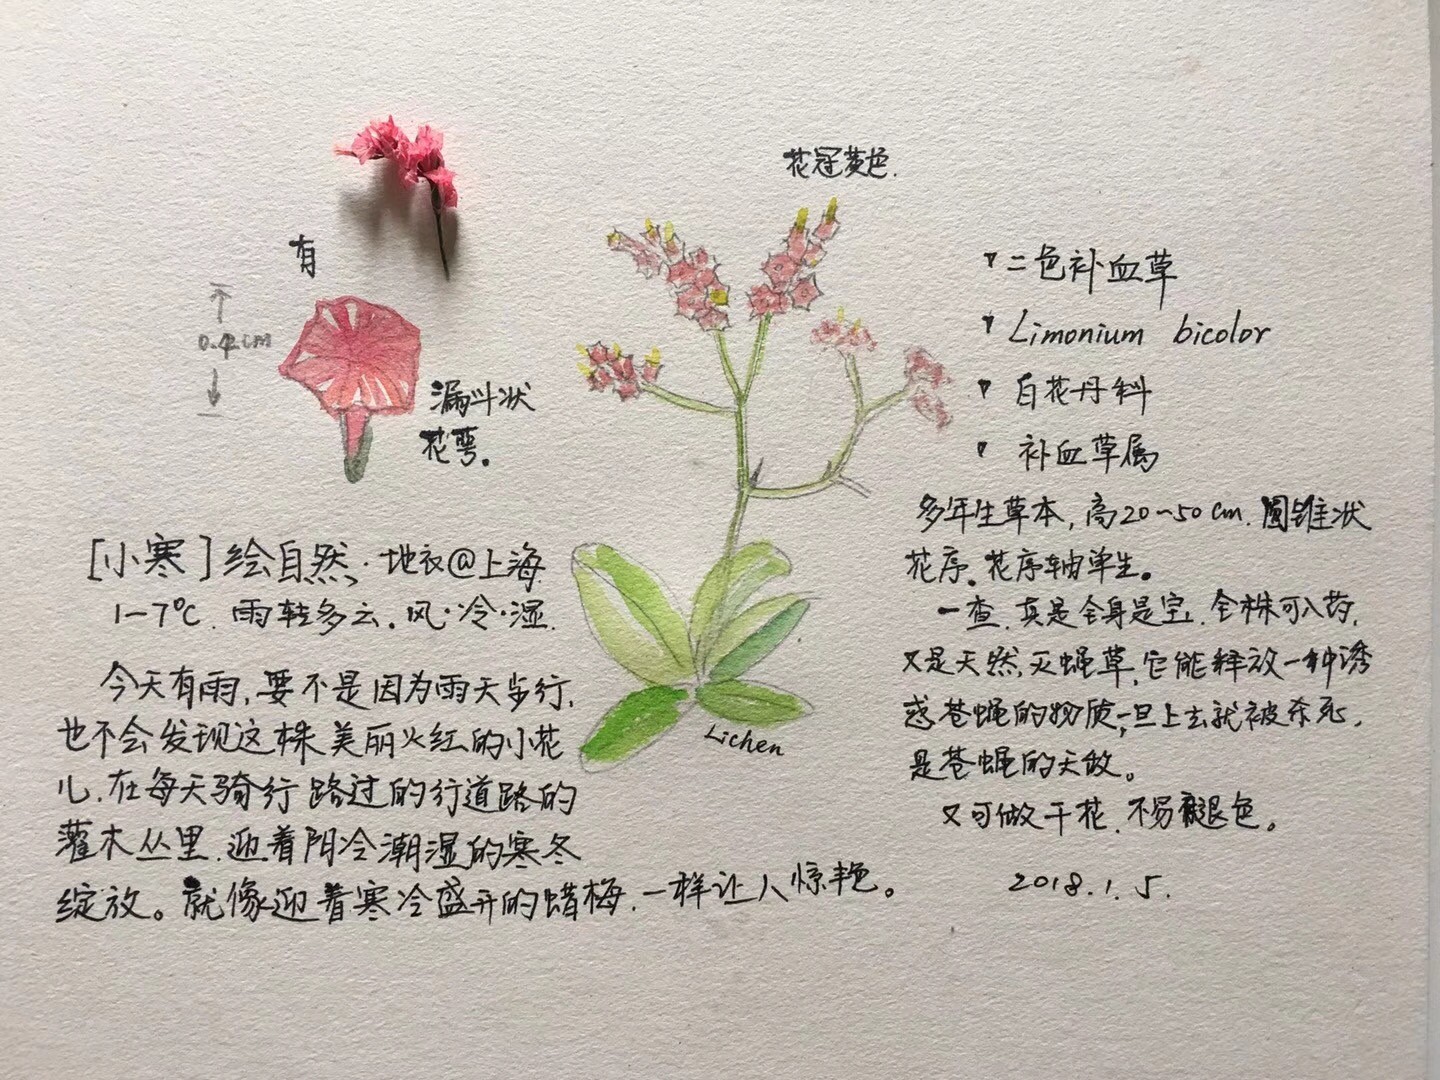 花冠黄色.
有
0.4cm
漏斗状
花萼。
二色补血草
Limonium bicolor
白花丹科
补血草属
多年生草本,高20~50cm.圆锥状
花序。花序轴单生。
一查.真是全身是宝,全株可入药,
又是天然灭蝇草,它能释放一种诱
惑苍蝇的物质,一旦上去就被杀死,
是苍蝇的天敌。
又可做干花.不易褪色。
2018.1.5.
[小寒]绘自然·地衣@上海
1-7℃.雨转多云.风·冷·湿.
今天有雨,要不是因为雨天步行,
也不会发现这株美丽火红的小花
儿.在每天骑行路过的行道路的
灌木丛里.迎着阴冷潮湿的寒冬
绽放。就像迎着寒冷盛开的蜡梅.一样让人惊艳。
Lichen